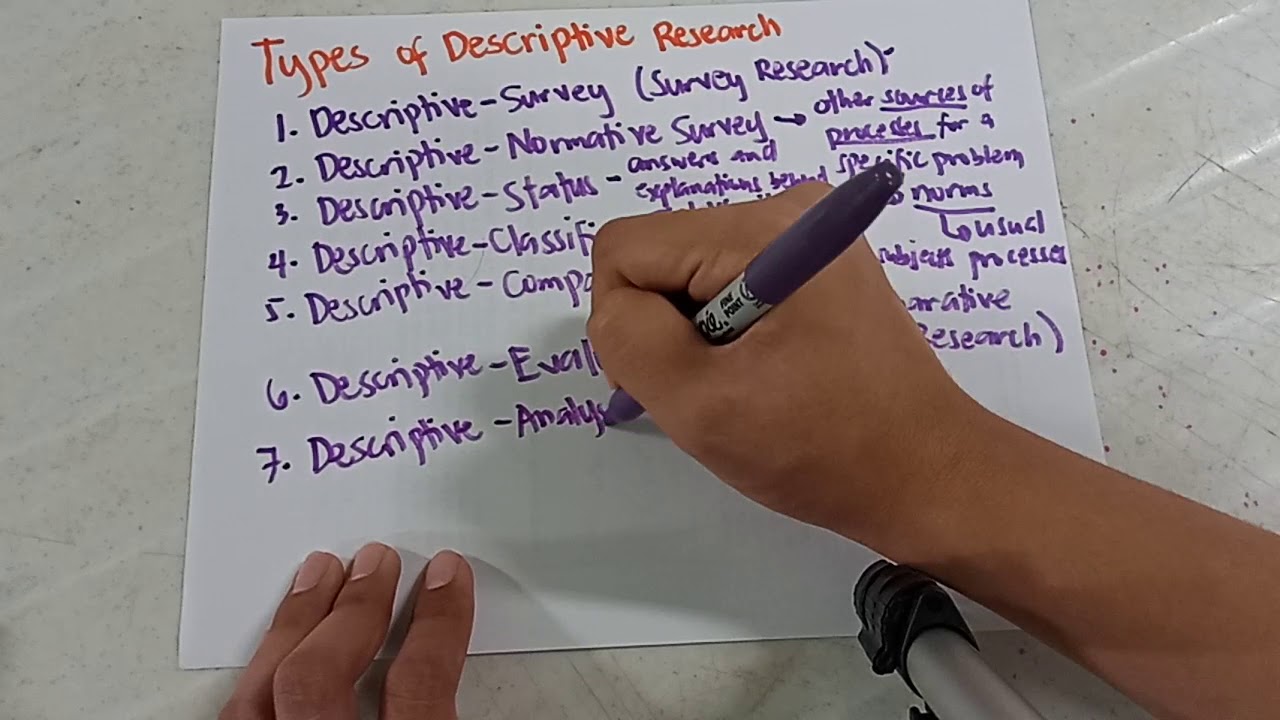 Types of Descriptive Research
1. Descriptive-Survey (Survey Research)
2. Descriptive-Normative Survey → other sources of
processes for a
specific problem
norms
usual
subjects processes
3. Descriptive-Status - answers and
explanations behind
4. Descriptive-Classifi
5. Descriptive-Compa
arative
Research)
6. Descriptive-Eval
7. Descriptive-Analys
FINE
POINT